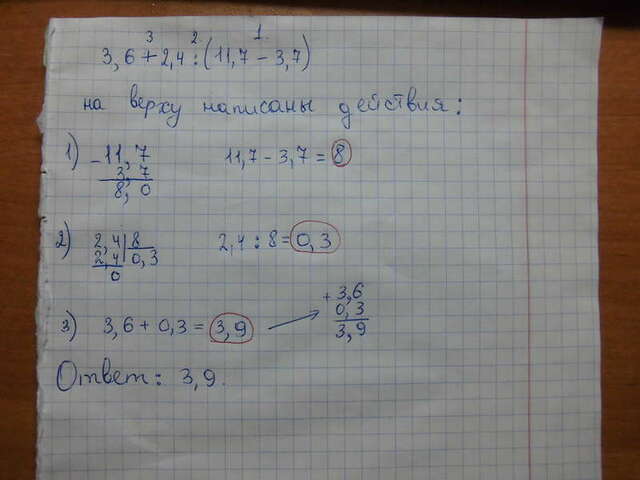 3 2 1.
3,6 + 2,4 : (11,7 - 3,7)
на верху написаны действия:
1) - 11,7 11,7 - 3,7 = 8
3,7
8,0
2) 2,4 8 2,4 : 8 = 0,3
2,4 0,3
0
3) 3,6 + 0,3 = 3,9 → + 3,6
0,3
3,9
Ответ: 3,9.